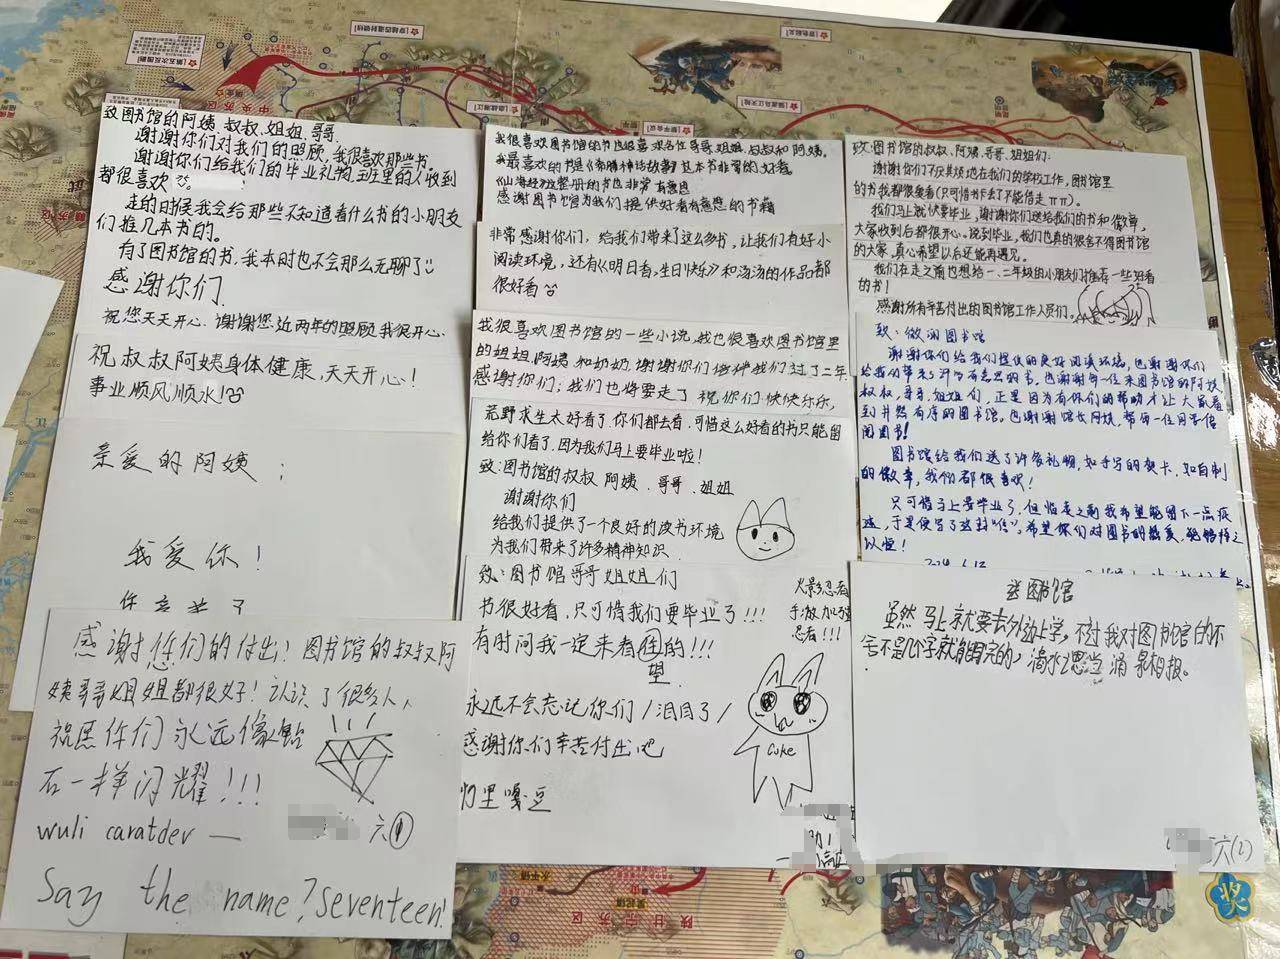 致图书馆的阿姨、叔叔、姐姐、哥哥.
谢谢你们对我们的照顾,我很喜欢那些书.
谢谢你们给我们的毕业礼物,班里的人收到
都很喜欢
走的时候我会给那些不知道看什么书的小朋友
们推几本书的.
有了图书馆的书,我本时也不会那么无聊了
感谢你们
祝您天天开心、谢谢您近两年的照顾我很开心.
祝叔叔阿姨身体健康,天天开心!
事业顺风顺水!
亲爱的阿姨;
我爱你!
感谢您们的付出!图书馆的叔叔阿
姨哥哥姐姐都很好!认识了很多人,
祝愿你们永远像鉆
石一样闪耀!!!
wuli caratdev —
六(1)
Say the name?Seventeen!
我很喜欢图书馆的书也很喜欢各位哥哥、姐姐、叔叔和阿姨。
我最喜欢的是《希腊神话故事》这本书非常的好看
《山海经》这整册的书也非常有意思
感谢图书馆为我们提供好看有意思的书籍
非常感谢你们,给我们带来了这么多书,让我们有好小
阅读环境,还有《明日香,生日快乐》和汤汤的作品都
很好看
我很喜欢图书馆的一些小说,我也很喜欢图书馆里
的姐姐、阿姨和奶奶,谢谢你们陪伴我们过了二年
感谢你们;我们也将要走了祝你们快快乐乐,
荒野求生太好看了,你们都去看,可惜这么好看的书只能留
给你们看了,因为我们马上要毕业啦!
致:图书馆的叔叔 阿姨、哥哥、姐姐
谢谢你们
给我们提供了一个良好的读书环境
为我们带来了许多精神知识.
致:图书馆哥哥姐姐们
书很好看,只可惜我们要毕业了!!!
有时间我一定来看住的!!!
望
永远不会忘记你们/泪目了/
感谢你们辛苦付出吧
阿里嘎豆
火影忍者
忍者!!!
Cuke
致:图书馆的叔叔、阿姨、哥哥、姐姐们:
谢谢你们不厌其烦地在我们的学校工作,图书馆里
的书我都很爱看(只可惜书卡丢了不能借走ππ)。
我们马上就快要毕业,谢谢你们送给我们的书和徽章,
大家收到后都很开心。说到毕业,我们也真的很舍不得图书馆
的大家,真心希望以后还能再遇见。
我们在走之前也想给一、二年级的小朋友们推荐一些好看
的书!
感谢所有辛苦付出的图书馆工作人员们。
致:微澜图书馆
谢谢你们给我们提供的良好阅读环境,也谢谢你们
给我们带来了许多有意思的书,也谢谢每一位来图书馆的阿姨
叔叔、哥哥、姐姐们,正是因为有你们的帮助才让大家看
到井然有序的图书馆。也谢谢馆长阿姨,帮每一位同学借
阅图书!
图书馆给我们送了许多礼物,如手写的贺卡、如自制
的徽章,我们都很喜欢!
只可惜马上要毕业了,但临走之前我希望能留下一点痕
迹,于是便写了这封“信”,希望你们对图书的热爱,能够持之
以恒!
致图书馆
虽然马上就要去外边上学,不过我对图书馆的不
舍不是几个字就能写完的,滴水之恩当涌泉相报。
六(2)
奖
中央苏区
陕甘苏区